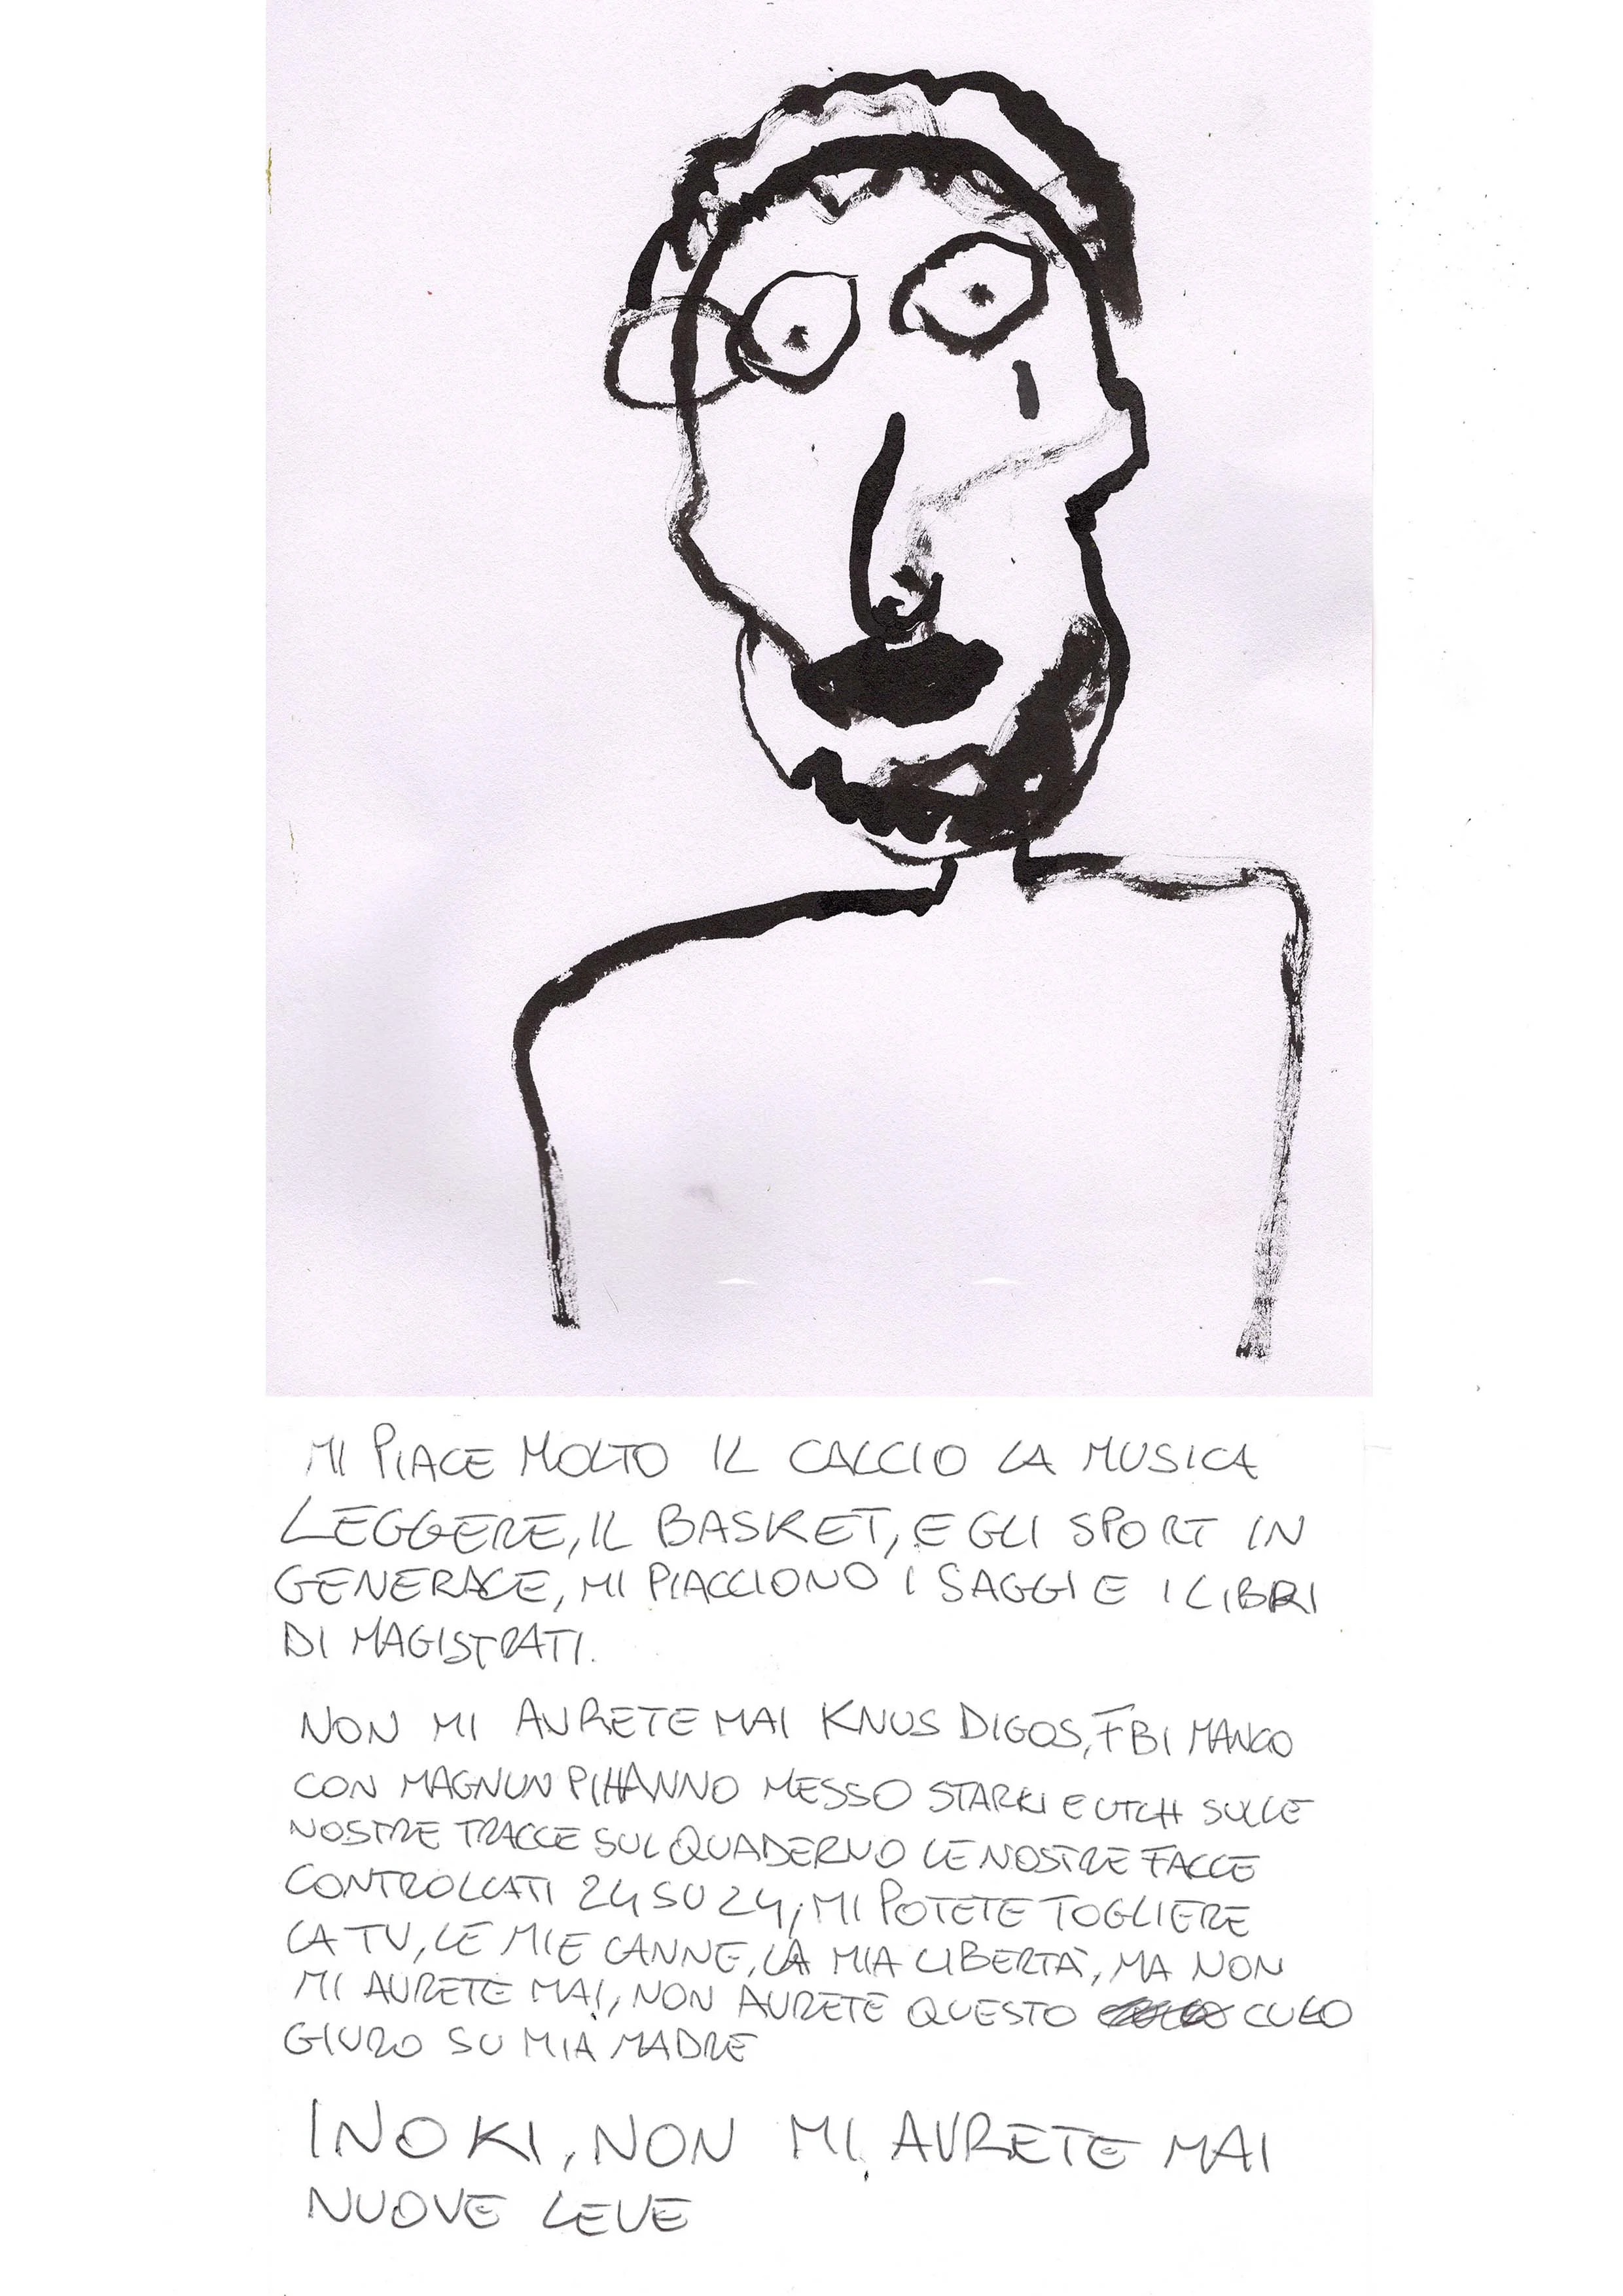 MI PIACE MOLTO IL CALCIO LA MUSICA
LEGGERE, IL BASKET, E GLI SPORT IN
GENERALE, MI PIACCIONO I SAGGI E I LIBRI
DI MAGISTRATI.
NON MI AVRETE MAI KNUS DIGOS, FBI MANCO
CON MAGNUN PI HANNO MESSO STARKI E UTCH SULLE
NOSTRE TRACCE SUL QUADERNO LE NOSTRE FACCE
CONTROLLATI 24 SU 24, MI POTETE TOGLIERE
LA TV, LE MIE CANNE, LA MIA LIBERTÀ, MA NON
MI AVRETE MAI, NON AVRETE QUESTO CULO
GIURO SU MIA MADRE
INOKI, NON MI AVRETE MAI
NUOVE LEVE